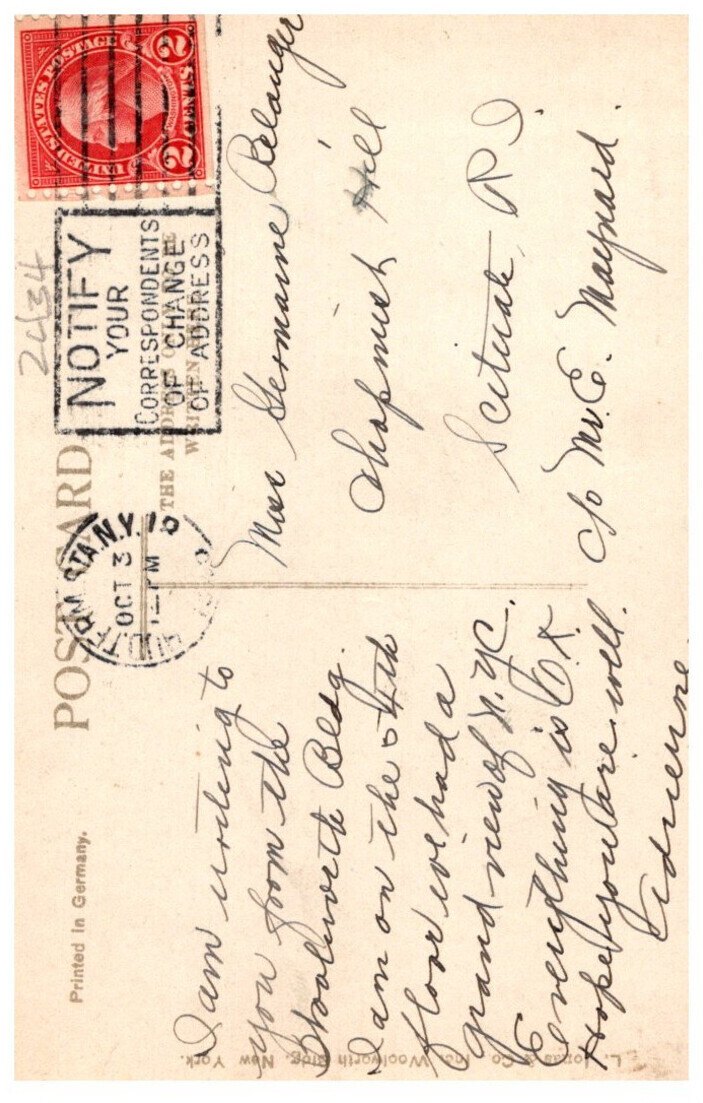 POST CARD
Printed in Germany.
I am writing to
you from the
Woolworth Bldg.
I am on the 54th
floor we had a
grand view of N.Y.C.
Everything is O.K.
Hope you are well.
Adrienne
L. Jonas & Co. Inc. Woolworth Bldg. New York.
UNITED STATES POSTAGE
WASHINGTON
2 CENTS 2
NOTIFY
YOUR
CORRESPONDENTS
OF CHANGE
OF ADDRESS
STA. N.Y. 16
OCT 3
PM
2434
THE ADDRESS
Miss Germaine Belanger
Chopmist Hill
Scituate, R I.
c/o Mr. E. Maynard.